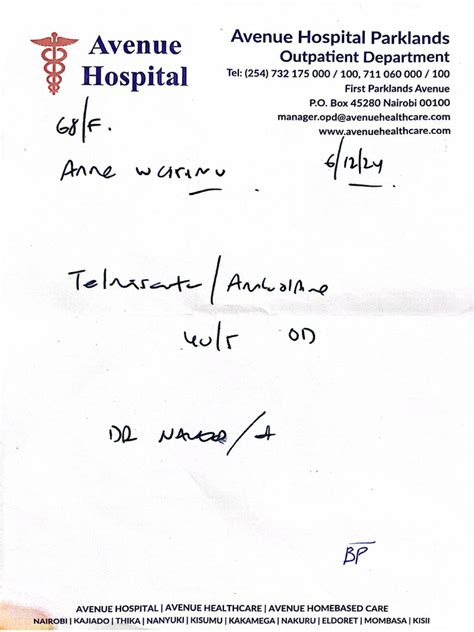 Avenue
Hospital
Avenue Hospital Parklands
Outpatient Department
Tel: (254) 732 175 000 / 100, 711 060 000 / 100
First Parklands Avenue
P.O. Box 45280 Nairobi 00100
manager.opd@avenuehealthcare.com
www.avenuehealthcare.com
68/F.
6/12/24
Anne
40/5 OD
DR
BP
AVENUE HOSPITAL | AVENUE HEALTHCARE | AVENUE HOMEBASED CARE
NAIROBI | KAJIADO | THIKA | NANYUKI | KISUMU | KAKAMEGA | NAKURU | ELDORET | MOMBASA | KISII